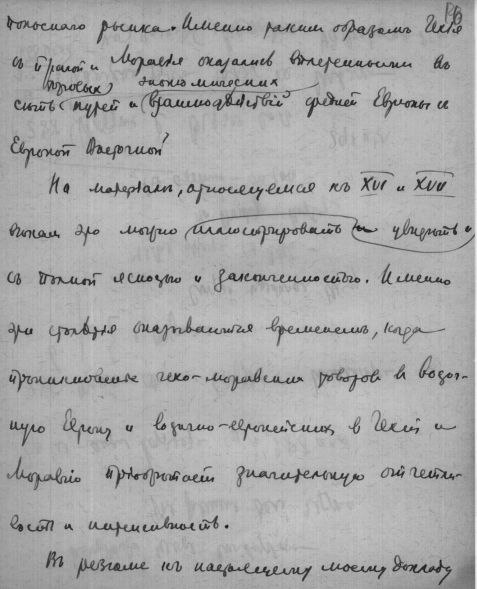 рынка. Именно таким образомъ Чехия
съ Прагой и Моравия оказались включенными въ
торговых экономических
сѣть путей и взаимодействий средней Европы с
Европой Восточной
На материалах, относящемся къ XVI и XVII
векам это можно иллюстрировать и увидѣть
съ полной ясностью и законченностью. Именно
эти столетия оказываются временемъ, когда
проникновение чехо-моравских товаров в восточ-
ную Европу и восточно-европейских в Чехию и
Моравию приобретает значительную отчетли-
вость и интенсивность.
Въ резюме къ настоящему моему докладу